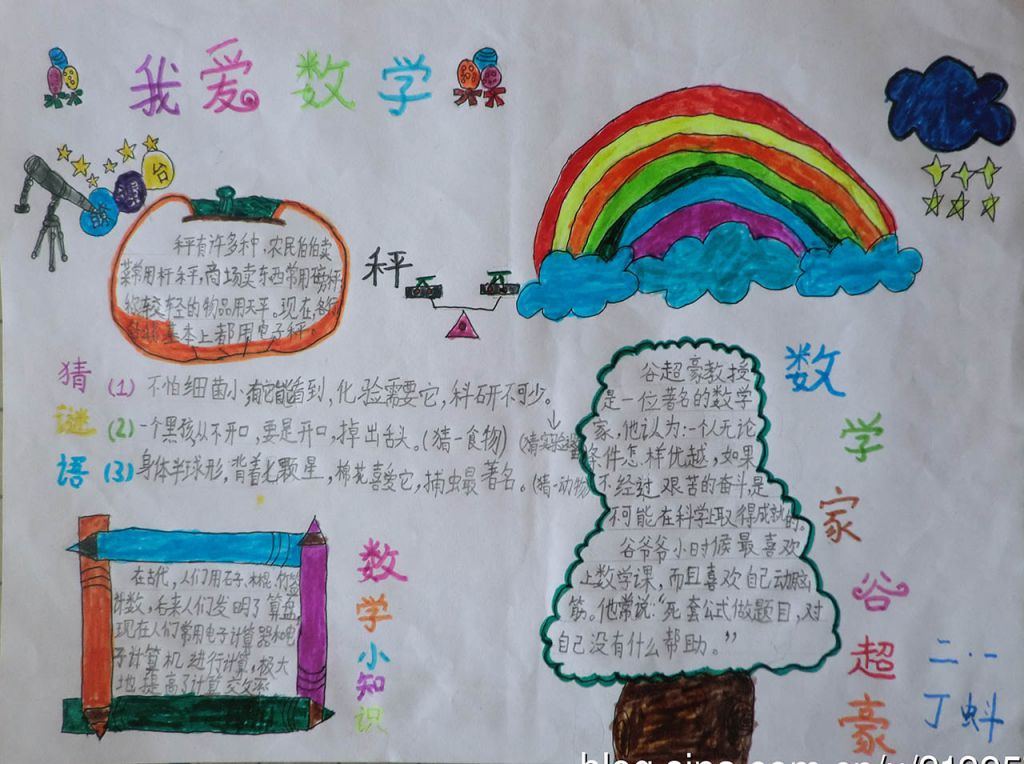 我爱数学
秤有许多种，农民伯伯卖
菜常用杆秤，商场卖东西常用磅秤，
称较轻的物品用天平。现在，各行
各业基本上都用电子秤。
秤
猜谜语
(1) 不怕细菌小，有它能看到，化验需要它，科研不可少。
(猜实验器
(2) 一个黑孩从不开口，要是开口，掉出舌头。(猜一食物)
(3) 身体半球形，背着七颗星，棉花喜爱它，捕虫最著名。(猜一动物
在古代，人们用石子、木棍、竹签
计数，后来人们发明了算盘，
现在人们常用电子计算器和电
子计算机进行计算，极大
地提高了计算
数学小知识
谷超豪教授
是一位著名的数学
家，他认为：一个人无论
条件怎样优越，如果
不经过艰苦的奋斗是
不可能在科学上取得成就的。
谷爷爷小时候最喜欢
上数学课，而且喜欢自己动脑
筋。他常说：“死套公式做题目，对
自己没有什么帮助。”
数学家谷超豪
二·一
丁蝌